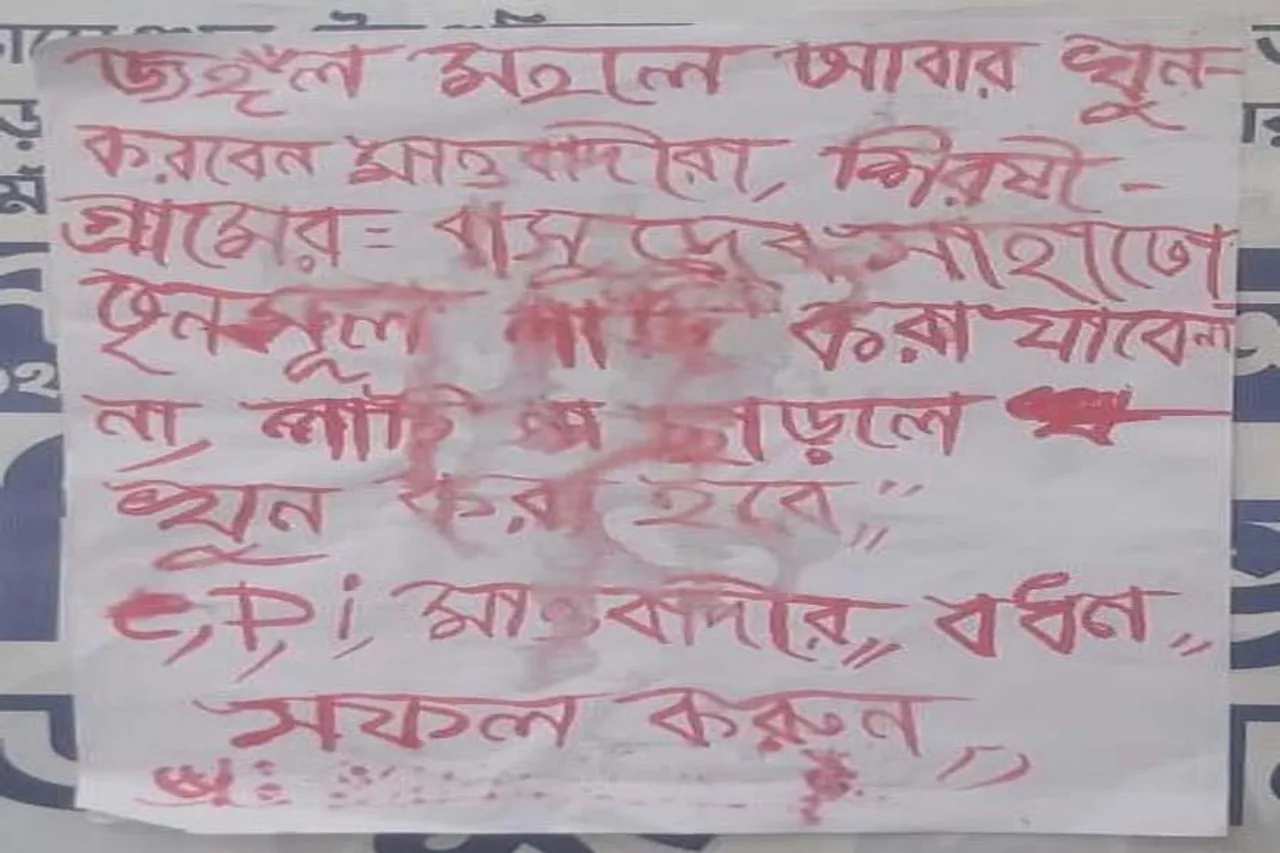 জঙ্গল মহলে আবার খুন-
করবেন মাওবাদীরা, শিরষী -
গ্রামের= বাসুদেব মাহাতো
তৃনমূল পার্টি করা যাবেনা
না, পার্টি না ছাড়লে
খুন করা হবে,,"
c,p,i, মাওবাদীর,, বর্ধণ,,
সফল করুন,,